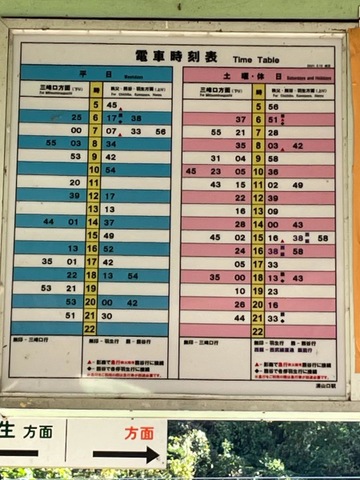 電車時刻表 Time Table
平 日 Weekdays
土 曜・休 日 Saturdays and Holidays
三峰口方面 (下り) 時 秩父・羽生・熊谷方面 (上り)
三峰口方面 (下り) 時 秩父・羽生・熊谷方面 (上り)
5 45
5 56
25 6 17 38
37 6 51
00 7 07 33 56
55 21 7 28
55 03 8 34
35 8 03 42
53 9 42
31 04 9 58
10 54
45 23 05 10 36
20 11
43 15 11 02 49
39 12 17
22 12 39
13 13
16 13 09
44 01 14 37
28 14 00 43
15 49
45 02 15 16 38 58
13 16 52
24 16 38 58
35 01 17 42
05 17 33
22 18 13 54
35 00 18 13 43
53 21 19
10 19 23
53 20 00 42
26 20 16
51 21 30
44 21 33
22
22
無印…三峰口行
無印…羽生行
無印…三峰口行
無印…羽生行
生 方面
方面